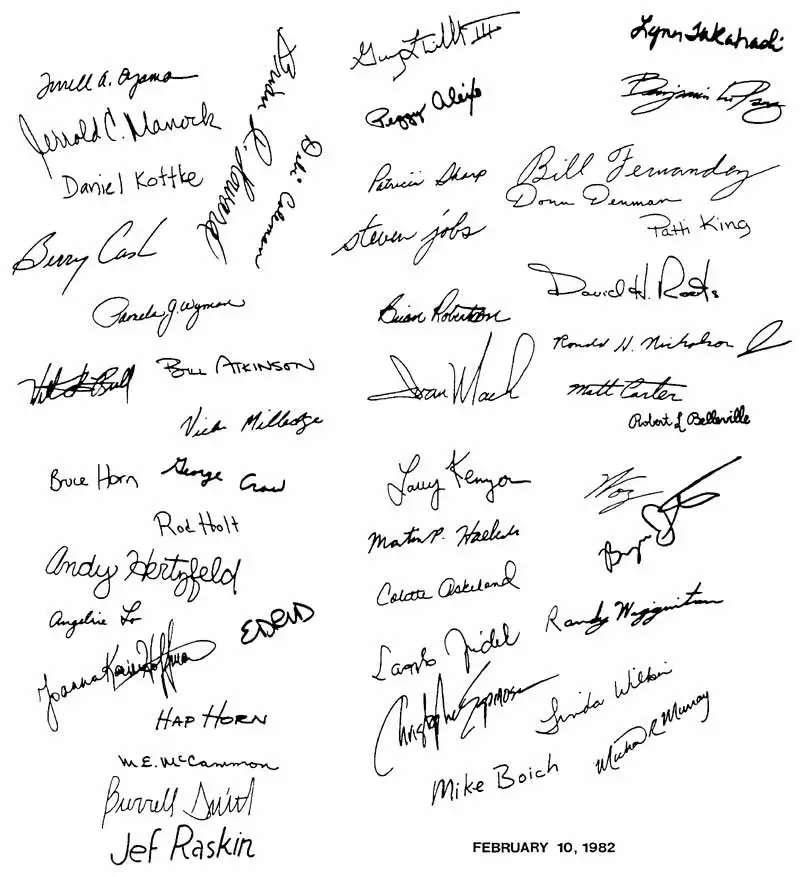 Guy L Tribble III
Lynn Takahashi
Terrell A. Oyama
Brian R. Howard
Benjamin L Pang
Peggy Alexio
Jerrold C. Manock
Debi Coleman
Daniel Kottke
Patricia Sharp
Bill Fernandez
Donn Denman
Patti King
steven jobs
Berry Cash
David H. Roots
Pamela J. Wyman
Brian Robertson
Ronald H. Nicholson Jr
Bill Atkinson
Ivan Mach
Matt Carter
Vicki Milledge
Robert L Belleville
Bruce Horn
George Crow
Larry Kenyon
Woz
Rod Holt
Martin P. Haeberli
Bryan
Andy Hertzfeld
Colette Askeland
Angeline Lo
EDRUD
Randy Wigginton
Laszlo Zidek
Joanna Karin Hoffman
Christopher Espinosa
Linda Wilkin
HAP HORN
Michael R Murray
M.E. McCammon
Mike Boich
Burrell Smith
Jef Raskin
FEBRUARY 10, 1982